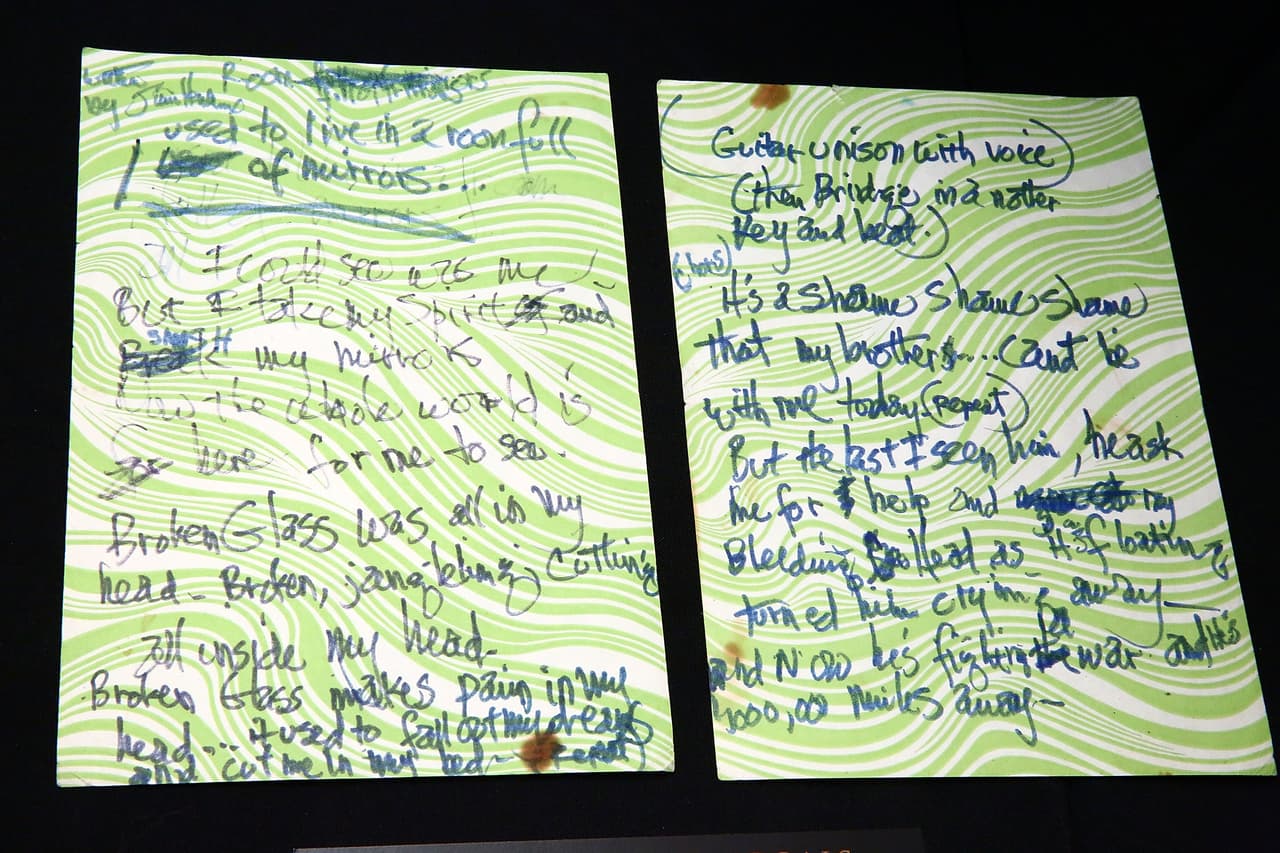 written Room full of mirrors
by Jimi Hendrix
I used to live in a room full
of mirrors...
I could see was me
But I take my Spirit and
SMASH my mirrors
the whole world is
here for me to see.
Broken Glass was all in my
head - Broken, jangleling, cutting
all unside my head -
Broken Glass makes pain in my
head... it used to fall out my dreams
and cut me in my bed - repeat
(Guitar unison with voice)
(then Bridge in a nother
key and beat.)
It's a Shame Shame Shame
that my brothers.... can't be
with me today (repeat)
But the last I seen him, he ask
me for help and my
Bleeding Head as H.S. floating
turned him crying away —
and Now he's fighting war and He's
1000,00 miles away —